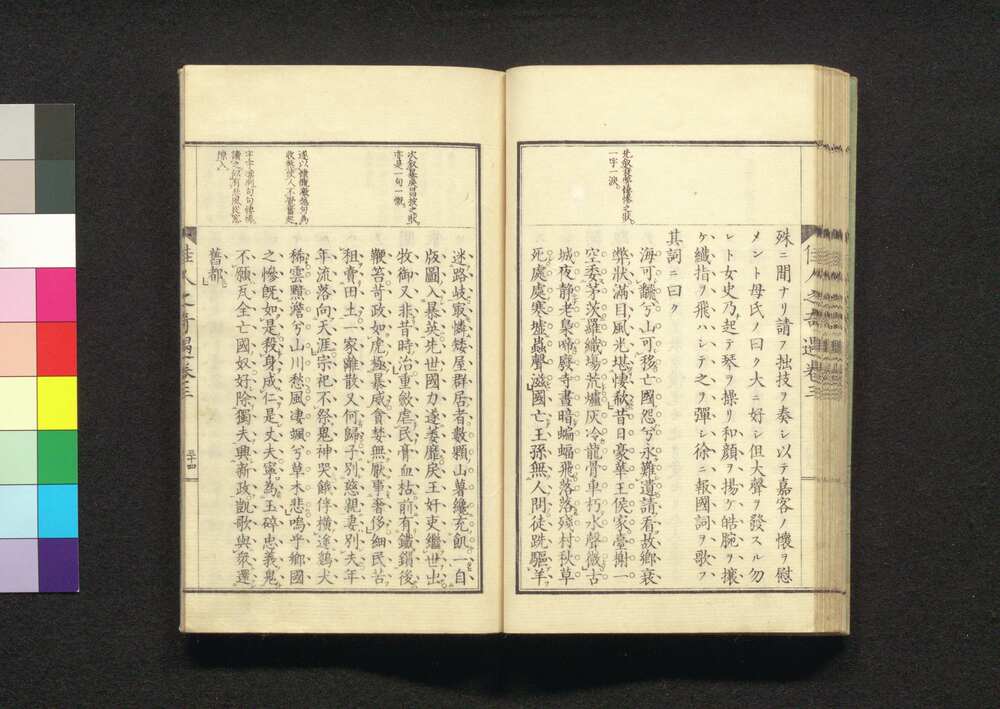 先叙自家悽愴之狀。
一字一淚。
殊ニ閒ナリ請フ拙技ヲ奏シ以テ嘉客ノ懷ヲ慰
メント母氏ノ曰ク大ニ好シ但大聲ヲ發スル勿
レト女史乃起テ琴ヲ操リ和顔ヲ揚ケ皓腕ヲ攘
ケ纖指ヲ飛ハシテ之ヲ彈シ徐ニ報國詞ヲ歌フ
其詞ニ曰ク
海可翻兮山可移亡國怨兮永難遺請看故鄕衰
弊狀滿目風光堪悽秋昔日豪華王侯家臺榭一
空委茅茨羅織場荒爐灰冷龍骨車朽水聲微古
城夜静老梟啼廢寺晝暗蝙蝠飛落落殘村秋草
死處處寒墟蟲聲滋國亡王孫無人問徒跣驅羊
次叙暴戻昌披之狀。
亦是一句一慨。
迷路歧最憐矮屋群居者數顆山薯纔充飢一自
版圖入暴英先世國力遂萎靡戾王奸吏繼世出
牧御又非昔時治重斂虐民膏血枯前有鐵鎖後
鞭笞苛政如虎極暴威貪婪無厭事奢侈細民苦
租賣田土一家離散又何歸子別慈親妻別夫年
年流落向天涯宗祀不祭鬼神哭餓俘橫途鷄犬
稀雲黯澹兮山川愁風凄颯兮草木悲鳴乎鄕國
之慘旣如是殺身成仁是丈夫寧為玉碎忠義鬼
不願瓦全亡國奴好除獨夫興新政凱歌與衆還
舊都。
遂以慷慨激烈句為
收煞使人不覺奮起。
佳人之奇遇卷三
三十四
佳人之奇遇卷三